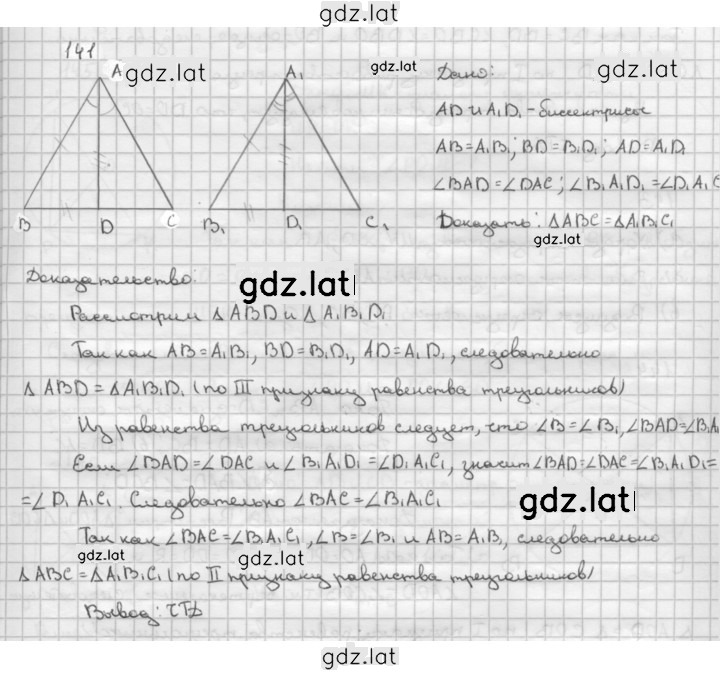 gdz.lat
141
A gdz.lat A₁ gdz.lat Дано: gdz.lat
AD и A₁D₁ - биссектрисы
AB=A₁B₁; BD=B₁D₁; AD=A₁D₁
∠BAD=∠DAC; ∠B₁A₁D₁=∠D₁A₁C
B D C B₁ D₁ C₁ Доказать: △ABC=△A₁B₁C₁
gdz.lat
Доказательство: gdz.lat
Рассмотрим △ABD и △A₁B₁D₁
Так как AB=A₁B₁, BD=B₁D₁, AD=A₁D₁, следовательно
△ABD=△A₁B₁D₁ (по III признаку равенства треугольников)
Из равенства треугольников следует, что ∠B=∠B₁, ∠BAD=∠B₁A₁
Если ∠BAD=∠DAC и ∠B₁A₁D₁=∠D₁A₁C₁, значит ∠BAD=∠DAC=∠B₁A₁D₁=
=∠D₁A₁C₁. Следовательно ∠BAC=∠B₁A₁C₁ gdz.lat
Так как ∠BAC=∠B₁A₁C₁, ∠B=∠B₁ и AB=A₁B₁, следовательно
gdz.lat gdz.lat
△ABC=△A₁B₁C₁ (по II признаку равенства треугольников)
Вывод: чтд
gdz.lat